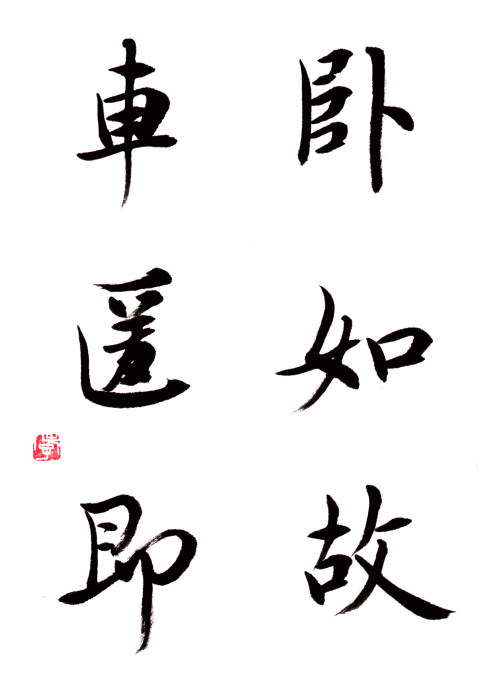 卧如故
車匿即